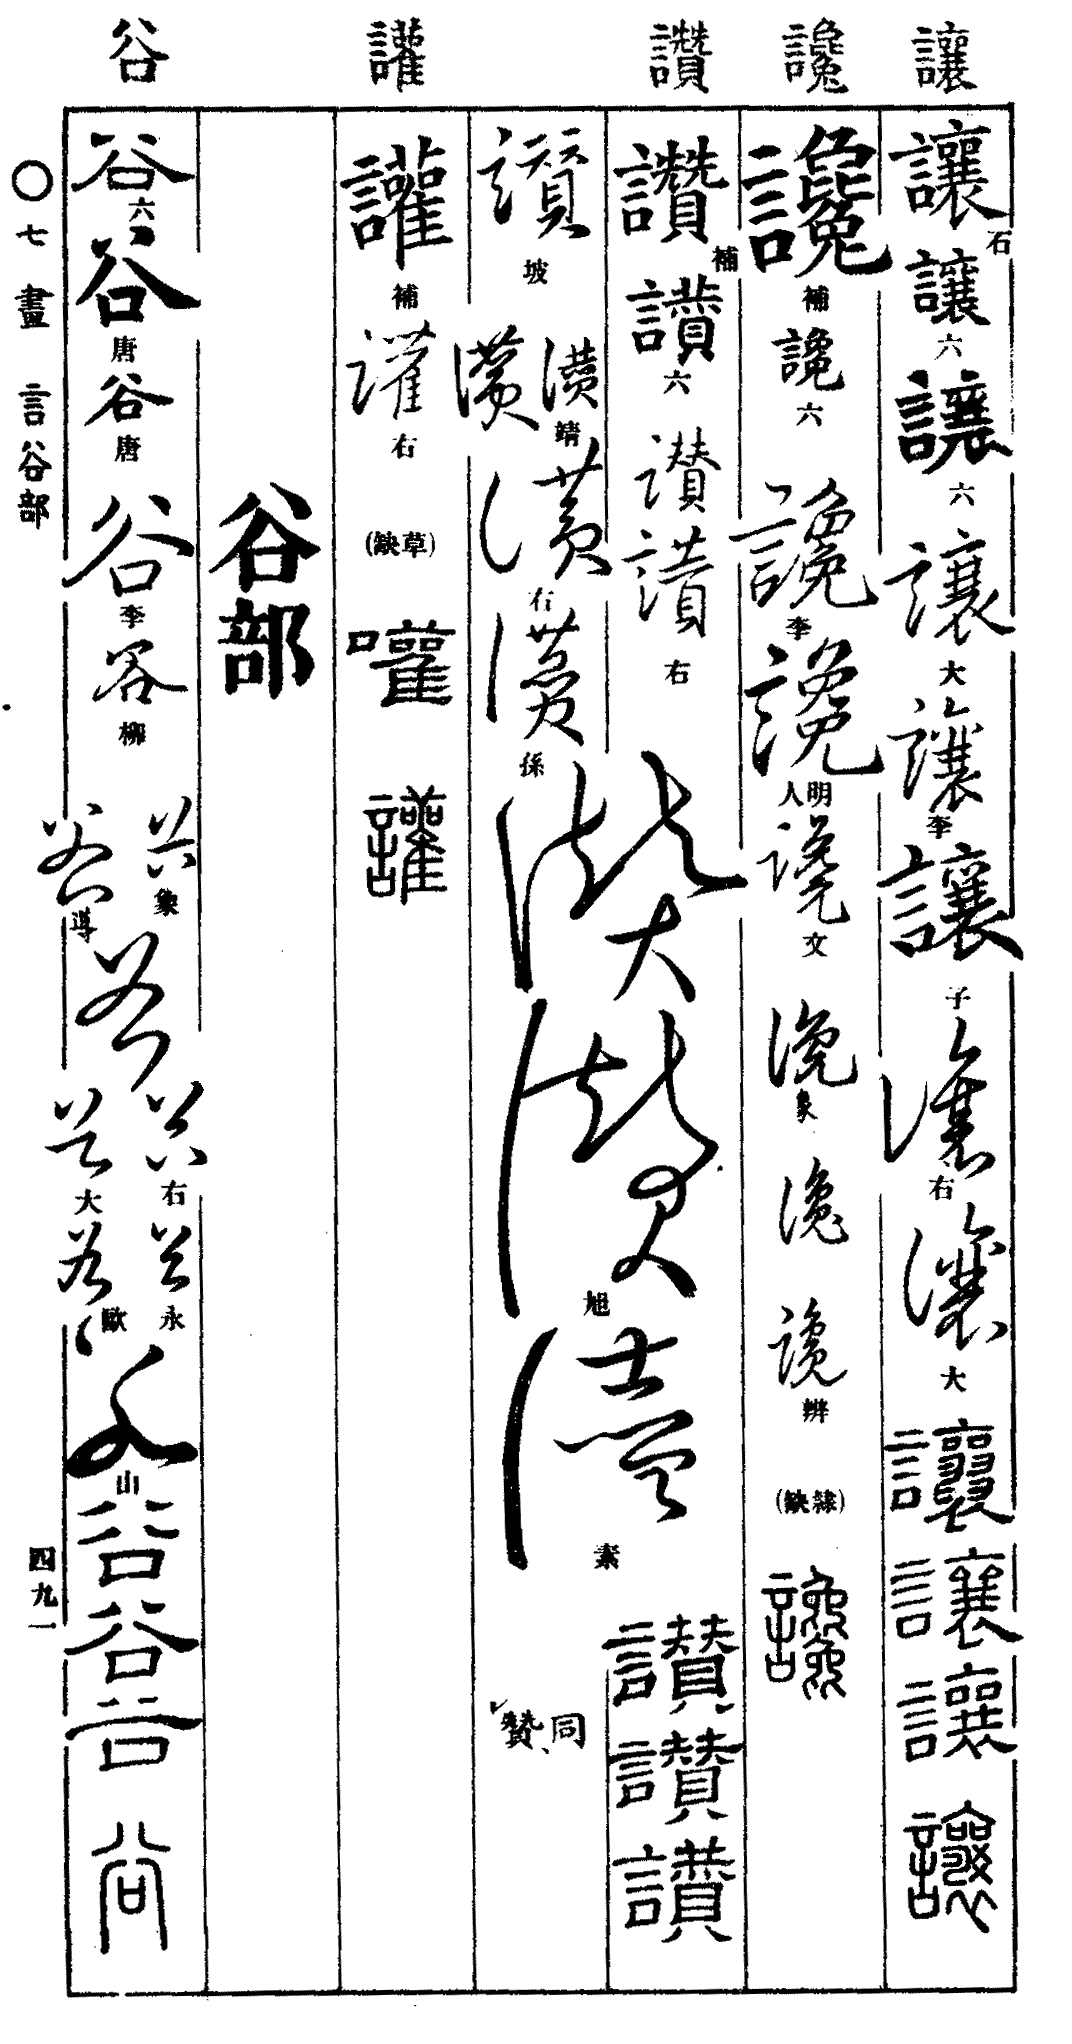 讓 讒 讚 讙 谷
讓 石 讓 六 讓 六 讓 大 讓 李 讓 子 讓 右 讓 大 讓 讓 讓 讓
讒 補 讒 六 讒 李 讒 明人 讒 文 讒 象 讒 讒 辨 (隸缺) 讒
讚 補 讚 六 讚 讚 右 讚 讚 讚
讚 坡 讚 讚 靖 讚 右 讚 孫 讚 大 讚 旭 讚 素 贊同
讙 補 讙 右 (草缺) 嚾 讙
谷部
谷 六 谷 唐 谷 唐 谷 李 谷 柳 谷 象 谷 導 谷 谷 右 谷 大 谷 永 谷 歐 谷 山 谷 谷 谷 谷
〇七畫 言谷部
四九一